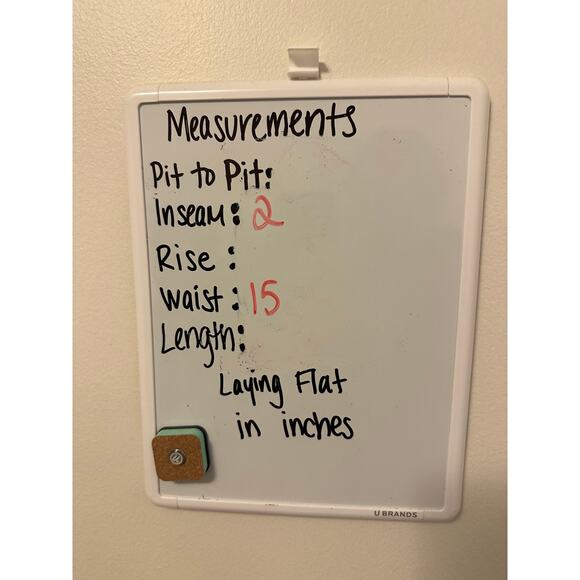 Measurements
Pit to Pit:
Inseam: 2
Rise:
Waist: 15
Length:
Laying Flat
in inches
U BRANDS